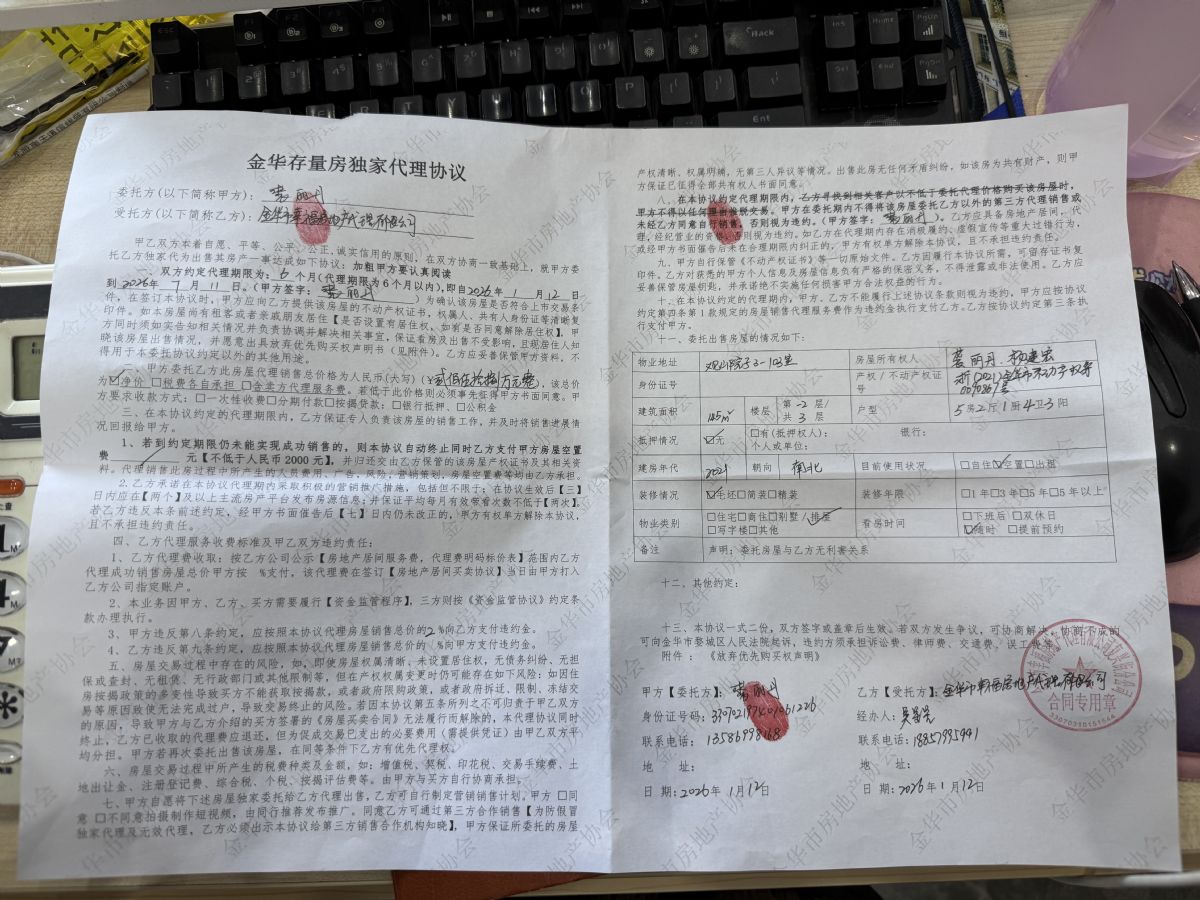 金华存量房独家代理协议
委托方(以下简称甲方):
受托方(以下简称乙方):
甲乙双方本着自愿、平等、公平、公正、诚实信用的原则,在双方协商一致基础上,就甲方委
托乙方独家代为出售其房产一事达成如下协议:加粗甲方要认真阅读
双方约定代理期限为: 6 个月(代理期限为6个月以内),即自2026年 1 月 12 日
到 2026年 7 月 11 日。(甲方签字: )为确认该房屋是否符合上市交易条
件,在签订本协议时,甲方应向乙方提供该房屋的不动产权证书,权属人、共有人身份证等清晰复
印件。如本房屋尚有租客或者亲戚朋友居住【是否设置有居住权,如有是否同意解除居住权】,甲
方同时须如实告知相关情况并负责协调并解决相关事宜,保证看房及出售不受影响,且现居住人知
晓该房屋出售情况,并愿意出具放弃优先购买权声明书(见附件)。乙方应妥善保管甲方资料,不
得用于本委托协议约定以外的其他用途。
二、甲方委托乙方此房屋代理销售总价格为人民币(大写)(¥ ),该总价
为☑净价 □税费各自承担 □含卖方代理服务费。若低于此价格则必须事先征得甲方书面同意。甲
方要求收款方式:□一次性收费□分期付款□按揭贷款:□银行抵押、□公积金
三、在本协议约定的代理期限内,乙方保证专人负责该房屋的销售工作,并及时将销售进展情
况回报给甲方。
1、若到约定期限仍未能实现成功销售的,则本协议自动终止同时乙方支付甲方房屋空置
费 元【不低于人民币2000元】,并归还交由乙方保管的该房屋产权证书及其相关资
料。代理销售此房过程中所产生的人员费用,广告,风险,营销策划,房屋空置费等均由乙方承担。
2.乙方承诺在本协议代理期内采取积极的营销推广措施,包括但不限于:在协议生效后【三】
日内应在【两个】及以上主流房产平台发布房源信息;并保证平均每月有效带看次数不低于【两次】。
若乙方违反本条前述约定,经甲方书面催告后【七】日内仍未改正的,甲方有权单方解除本协议,
且不承担违约责任。
四、乙方代理服务收费标准及甲乙双方违约责任:
1、乙方代理费收取:按乙方公司公示【房地产居间服务费,代理费明码标价表】范围内乙方
代理成功销售房屋总价甲方按 %支付,该代理费在签订【房地产居间买卖协议】当日由甲方打入
乙方公司指定账户。
2、本业务因甲方、乙方、买方需要履行【资金监管程序】,三方则按《资金监管协议》约定条
款办理执行。
3、甲方违反第八条约定,应按照本协议代理房屋销售总价的2 %向乙方支付违约金。
4、乙方违反第九条约定,应按照本协议代理房屋销售总价的 %向甲方支付违约金。
五、房屋交易过程中存在的风险,如,即使房屋权属清晰、未设置居住权,无债务纠纷、无担
保或查封、无租赁、无行政部门或其他限制等,但在产权权属变更时仍可能存在如下风险:如因住
房按揭政策的多变性导致买方不能获取按揭款,或者政府限购政策,或者政府拆迁、限制、冻结交
易等原因致使无法完成过户,导致交易终止的风险。若因本协议第五条所列之不可归责于甲乙双方
的原因,导致甲方与乙方介绍的买方签署的《房屋买卖合同》无法履行而解除的,本代理协议同时
终止,乙方已收取的代理费应退还,但为促成交易已支出的必要费用(需提供凭证)由甲乙双方平
均分担。甲方若再次委托出售该房屋,在同等条件下乙方有优先代理权。
六、房屋交易过程中所产生的税费种类及金额,如:增值税、契税、印花税、交易手续费、土
地出让金、注册登记费、综合税、个税、按揭评估费等。由甲方与买方自行协商承担。
七、甲方自愿将下述房屋独家委托给乙方代理出售,乙方可自行制定营销销售计划。甲方 □同
意 □不同意拍摄制作短视频,由同行推荐发布推广。同意乙方可通过第三方合作销售【为防假冒
独家代理及无效代理,乙方必须出示本协议给第三方销售合作机构知晓】,甲方保证所委托的房屋
产权清晰、权属明晰,无第三人异议等情况。出售此房无任何矛盾纠纷,如该房为共有财产,则甲
方保证已征得全部共有权人书面同意。
八、在本协议约定代理期限内,乙方寻找到相关客户以不低于委托代理价格购买该房屋时,
甲方不得以任何理由推脱交易。甲方在委托期内不得将该房屋委托乙方以外的第三方代理销售或
未经乙方同意自行销售,否则视为违约。(甲方签字: )。乙方应具备房地产居间、代
理,经纪营业的资格,否则视为违约。如乙方在代理期内存在消极履约、虚假宣传等重大过错行为,
或经甲方书面催告后未在合理期限内纠正的,甲方有权单方解除本协议,且不承担违约责任。
九、甲方自行保管《不动产权证书》等一切原始文件。乙方因履行本协议所需,可留存证书复
印件。乙方对获悉的甲方个人信息及房屋信息负有严格的保密义务,不得泄露或非法使用。乙方应
妥善保管房屋钥匙,并承诺绝不实施任何损害甲方合法权益的行为。
十、在本协议约定的代理期内,甲方、乙方不能履行上述协议条款则视为违约,甲方应按协议
约定第四条第1款规定的房屋销售代理服务费作为违约金执行支付乙方。乙方按协议约定第三条执
行支付甲方。
十一、委托出售房屋的情况如下:
物业地址 3-103室 房屋所有权人
身份证号 产权/不动产权证号
建筑面积 185m² 楼层 第-2 层/共 3 层 户型 5房2厅1厨4卫3阳
抵押情况 ☑无 □有(抵押权人): 银行: 个人或单位:
建房年代 2021 朝向 南北 目前使用状况 □自住☑空置□出租
装修情况 ☑毛坯□简装□精装 装修年限 □1年□3年□5年□5年以上
物业类别 □住宅□商住□别墅/排屋 □写字楼□其他 看房时间 □下班后 □双休日 ☑随时 □提前预约
备注 声明:委托房屋与乙方无利害关系
十二、其他约定:
十三、本协议一式二份,双方签字或盖章后生效。若双方发生争议,可协商解决,协商不成的
可向金华市婺城区人民法院起诉,违约方须承担诉讼费、律师费、交通费、误工费等。
附件:《放弃优先购买权声明》
甲方【委托方】:
乙方【受托方】:
身份证号码:
经办人:
联系电话:13586998168
联系电话:18857995941
地 址:
地 址:
日 期:2026年 1月12日
日 期:2026年1月12日
合同专用章
3307031015154４
金华市房地产协会